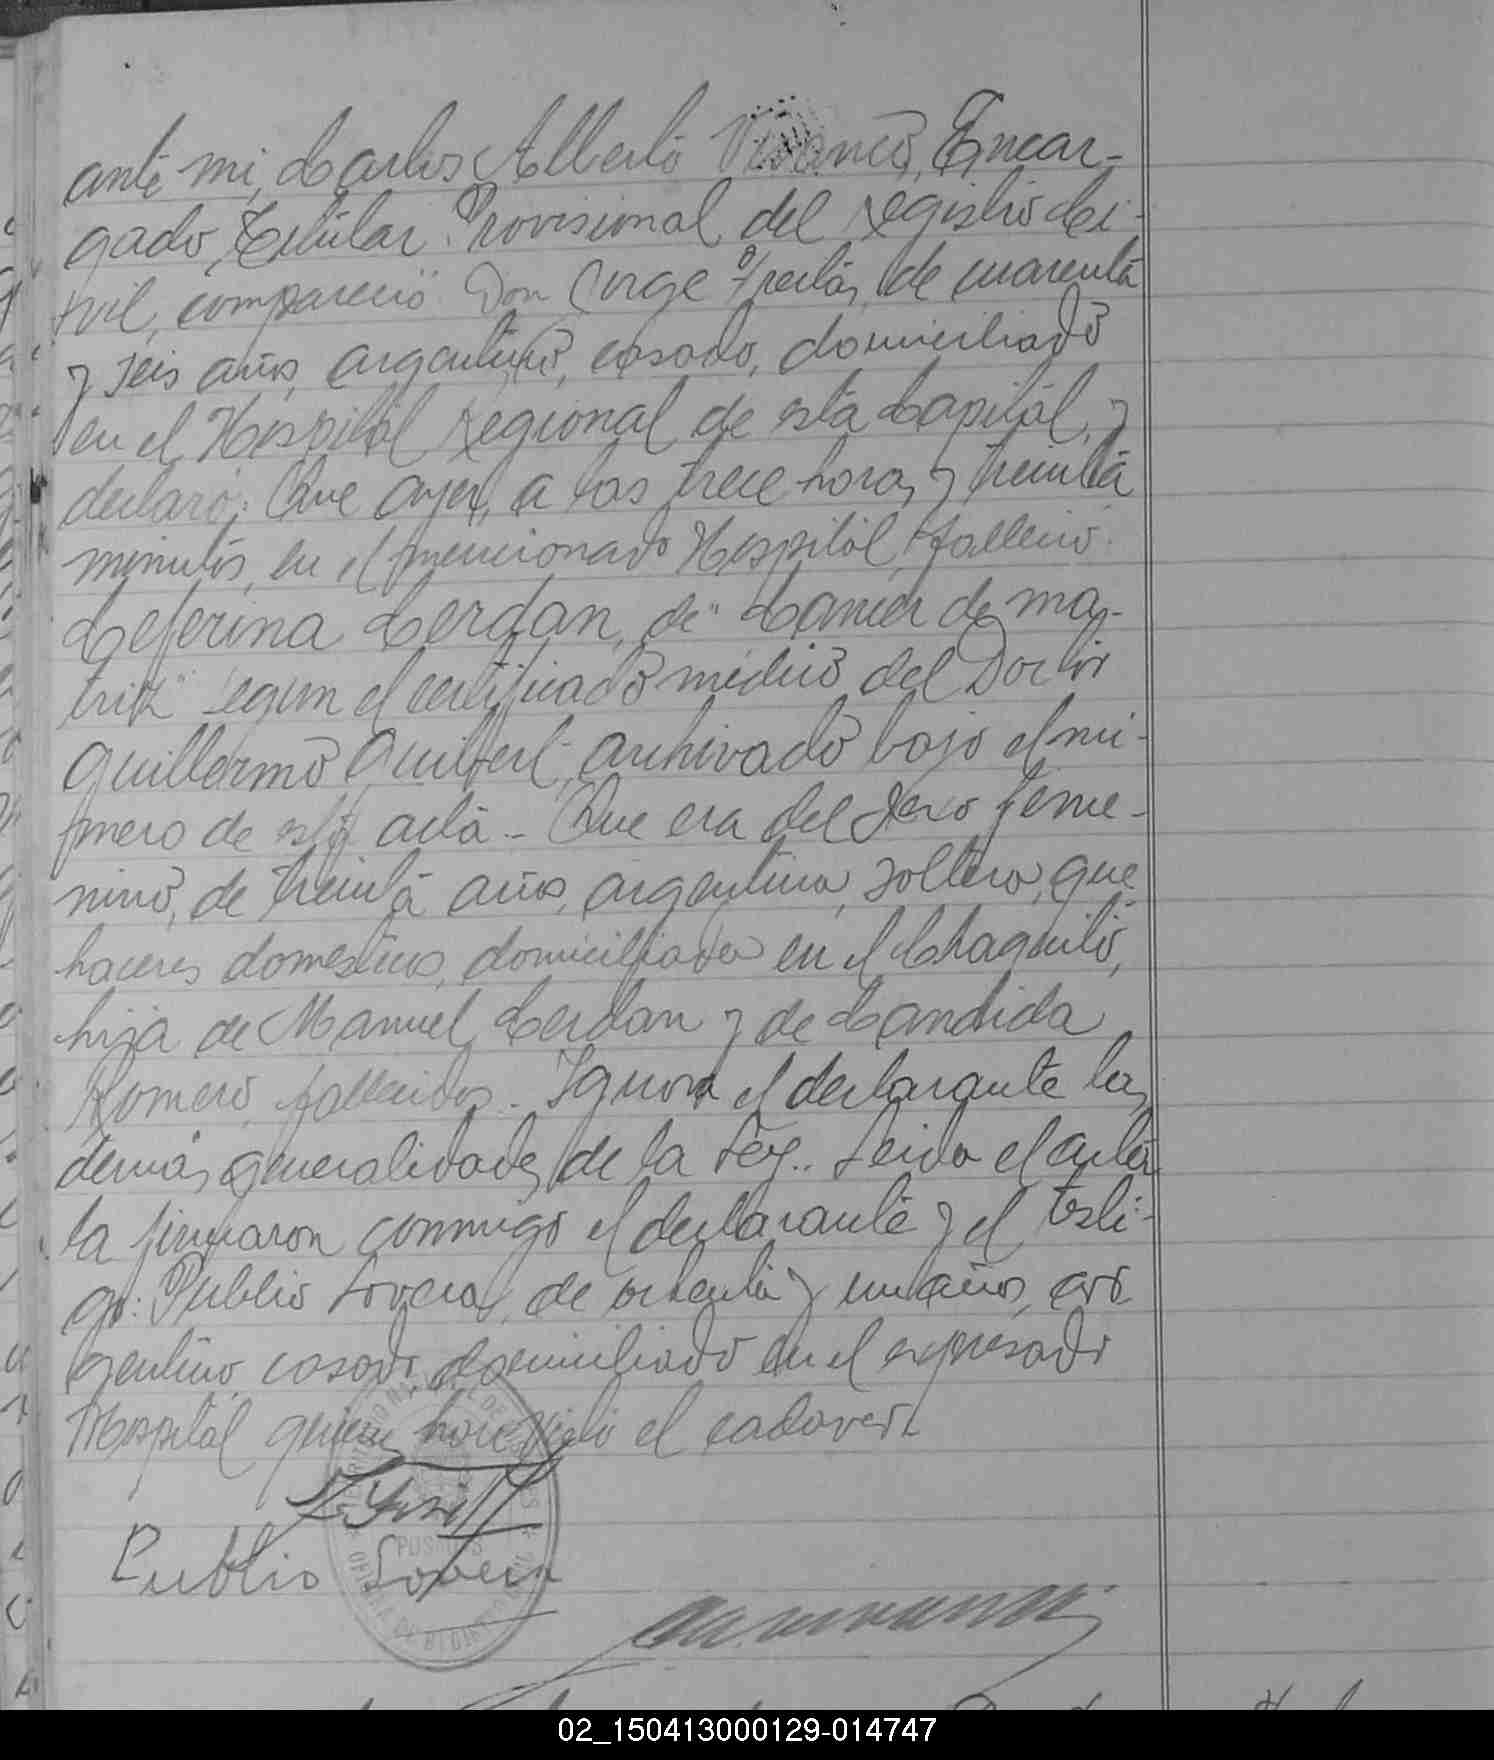 ante mi, Carlos Alberto Vivanco, Encar-
gado Titular Provisional del Registro Ci-
vil, compareció Don Jorge Freitas, de cuarenta
y seis años, argentino, casado, domiciliado
en el Hospital Regional de esta Capital, y
declaró: Que ayer, a las trece horas y treinta
minutos, en el mencionado Hospital, falleció
Ceferina Cerdan, de "Cancer de ma-
triz" segun el certificado médico del Doctor
Guillermo archivado bajo el nú-
mero de esta acta.- Que era del sexo feme-
nino, de treinta años, argentina, soltera, que
haceres domesticos, domiciliada en el Chaquito,
hija de Manuel Cerdan y de Candida
Romero, fallecidos. Ignora el declarante las
demás generalidades de la Ley.. Leida el acta
la firmaron conmigo el declarante y el testi-
go: Publio Lovera, de ochenta y un años, ar-
gentino casado, domiciliado en el expresado
Hospital quienes han visto el cadaver.
Publio Lovera
POSADAS
02_150413000129-014747